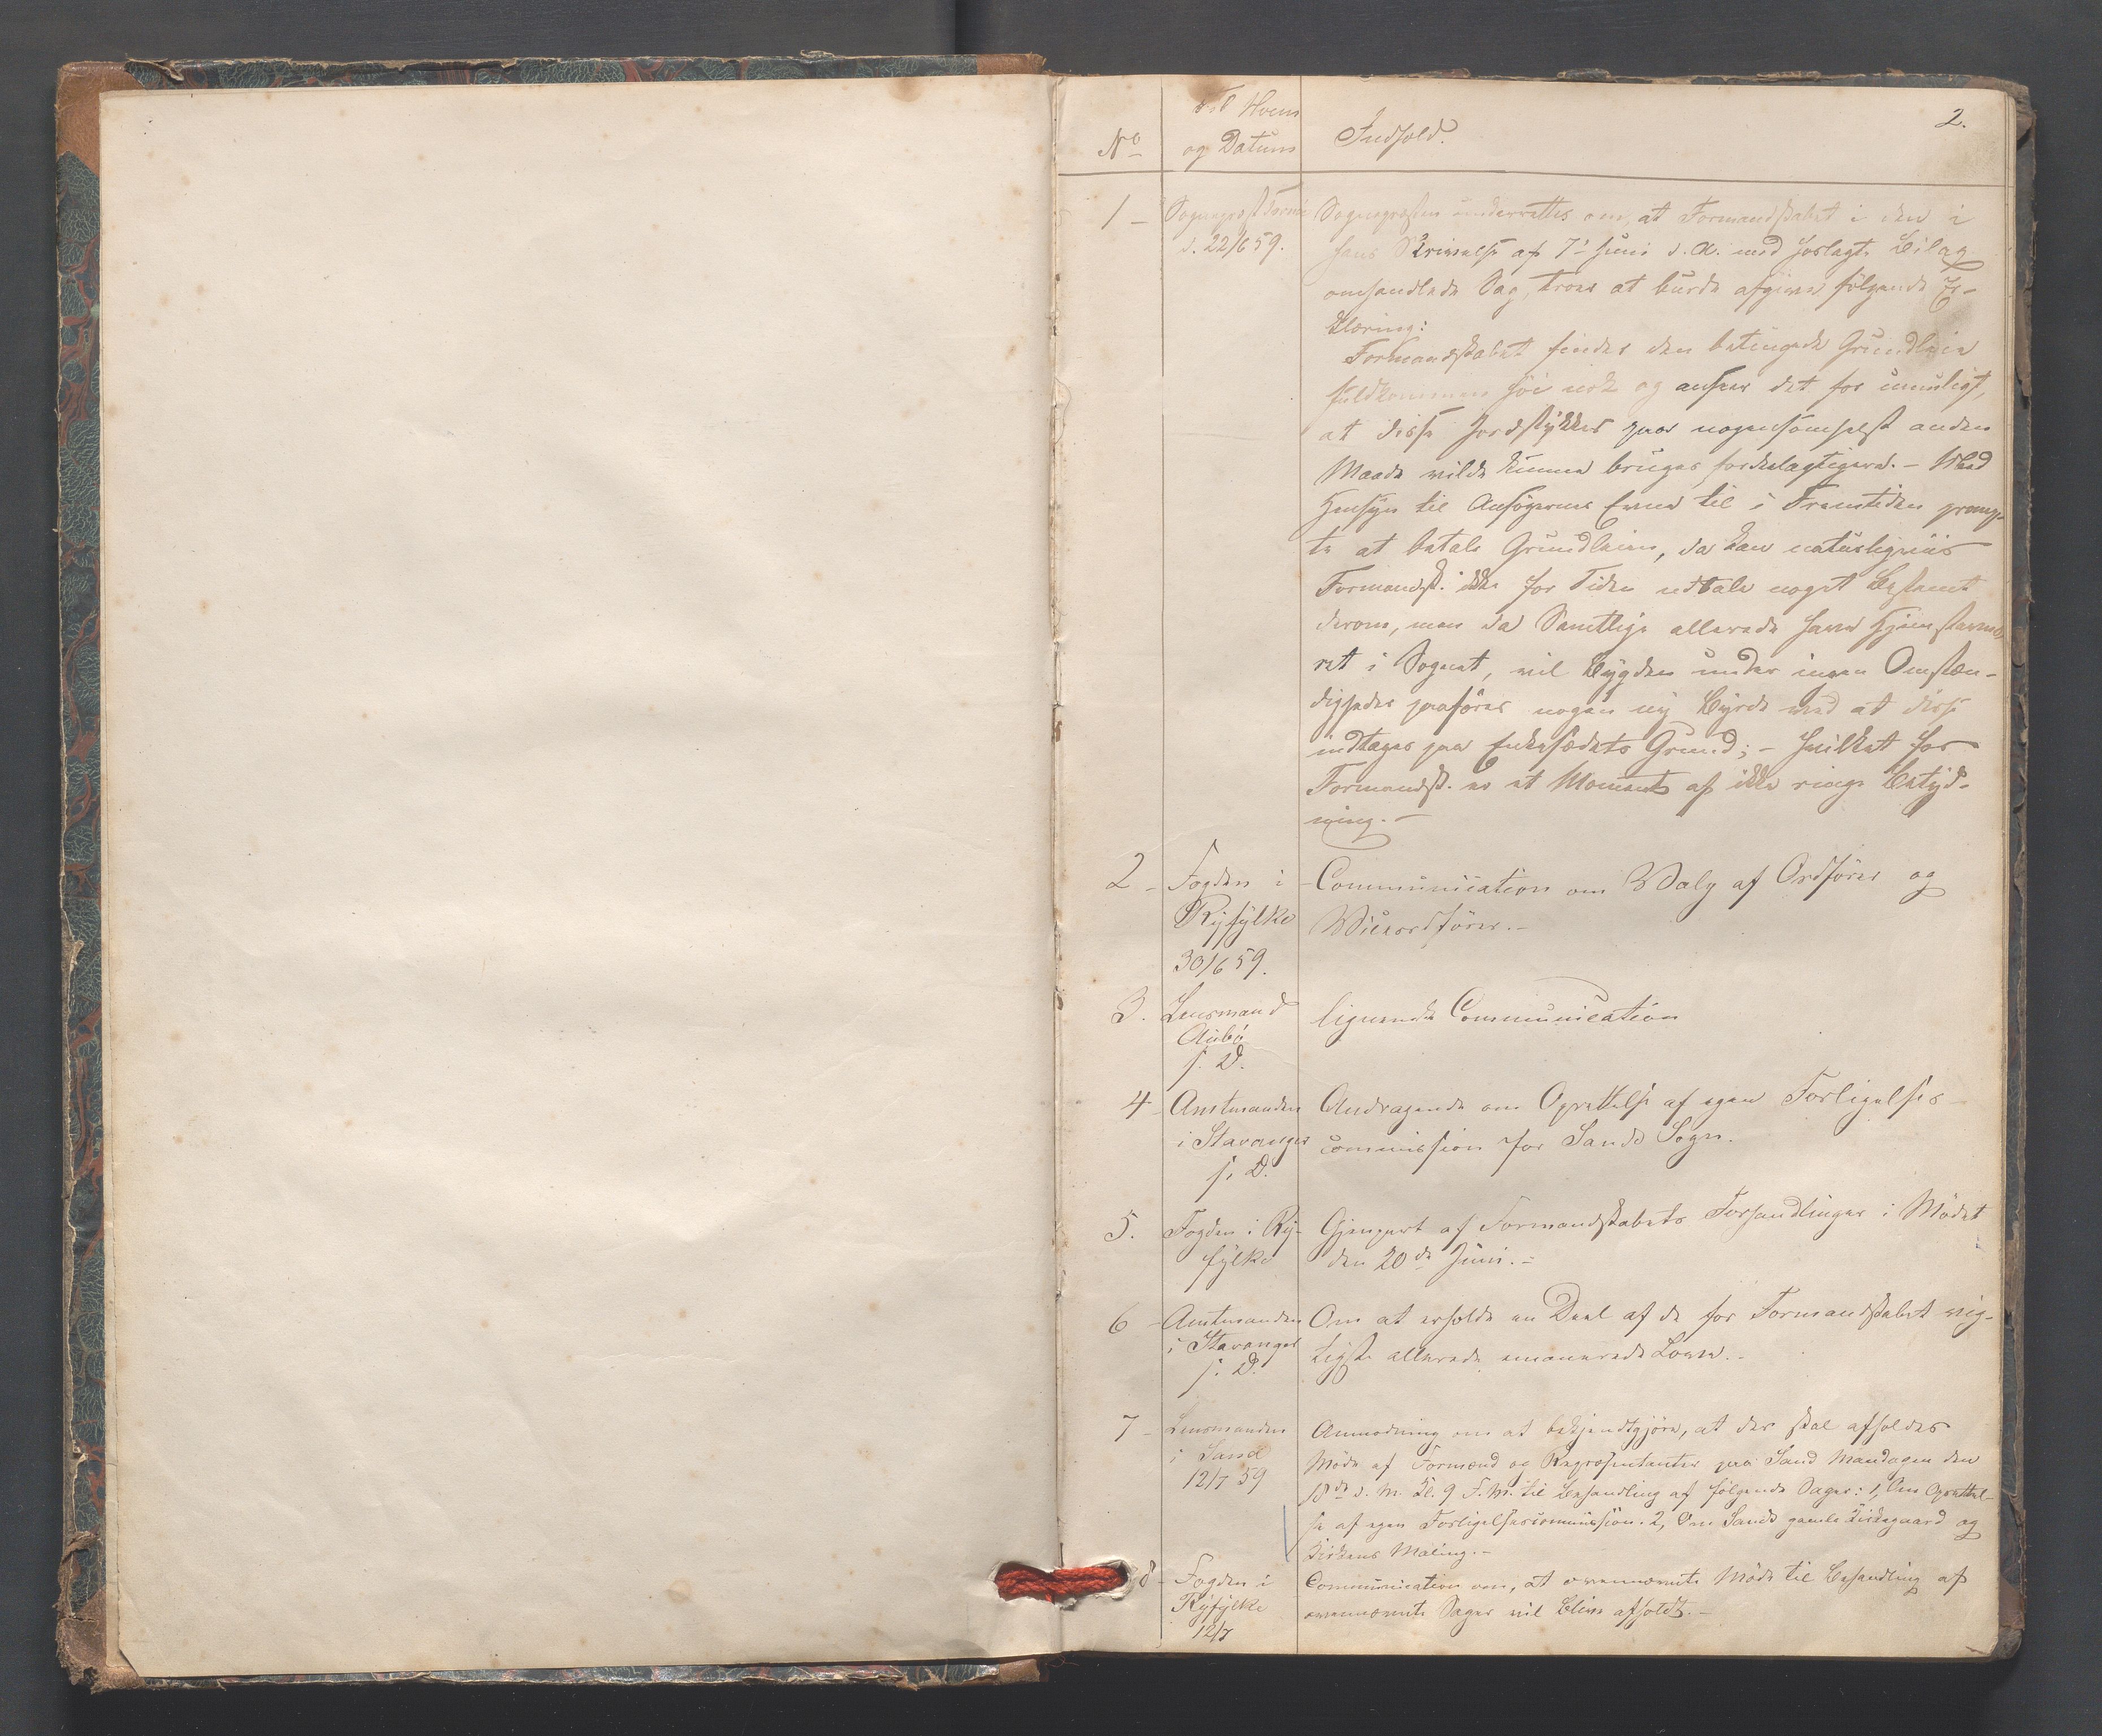 2.
No
Til Hvem
og Datum
Indhold.
1 –
Sognepræst
d. 22/6 59.
Sognepræsten underrettes om, at Formandskabet i den i
hans Skrivelse af 7de Juni d. A. med forlagte Bilag
omhandlede Sag, troer at burde afgive følgende Er-
klæring:
Formandskabet finder den betingede Grundleie
fuldkommen høi nok og anseer det for umuligt,
at disse Jordstykker paa nogensomhelst anden
Maade vilde kunne bruges fordeelagtigere. – Med
Hensyn til Ansøgernes Evne til i Fremtiden promp-
te at betale Grundleien, da kan naturligviis
Formandsk. ikke for Tiden udtale noget Bestemt
derom, men da Samtlige allerede have Hjemstavns-
ret i Sognet, vil Bygden under ingen Omstæn-
digheder paaføres nogen ny Byrde ved at disse
indtages paa Enkesædets Grund; – hvilket for
Formandsk. er et Moment af ikke ringe Betyd-
ning. –
2 –
Fogden i
Ryfylke
30/6 59.
Communication om Valg af Ordfører og
Viceordfører. –
3.
Lensmand
Aubø
s. D.
lignende Communication
4 –
Amtmanden
i Stavanger
s. D.
Andragende om Oprettelse af egen Forligelses-
commission for Sands Sogn.
5.
Fogden i Ry-
fylke
Gjenpart af Formandskabets Forhandlinger i Mødet
den 20de Juni. –
6 –
Amtmanden
i Stavanger
s. D.
Om at erholde en Deel af de for Formandskabet vig-
tigste allerede emanerede Love. –
7 –
Lensmanden
i Sand
12/7 59
Anmodning om at bekjendtgjøre, at der skal afholdes
Møde af Formænd og Repræsentanter paa Sand Mandagen den
18de d. M. Kl. 9 F.M. til Behandling af følgende Sager: 1, Om Oprettel-
se af egen Forligelsescommission. 2, Om Sands gamle Kirkegaard og
Kirkens Maling. –
8 –
Fogden i
Ryfylke
12/7
Communication om, at ovennævnte Møde til Behandling af
ovennævnte Sager vil blive afholdt. –